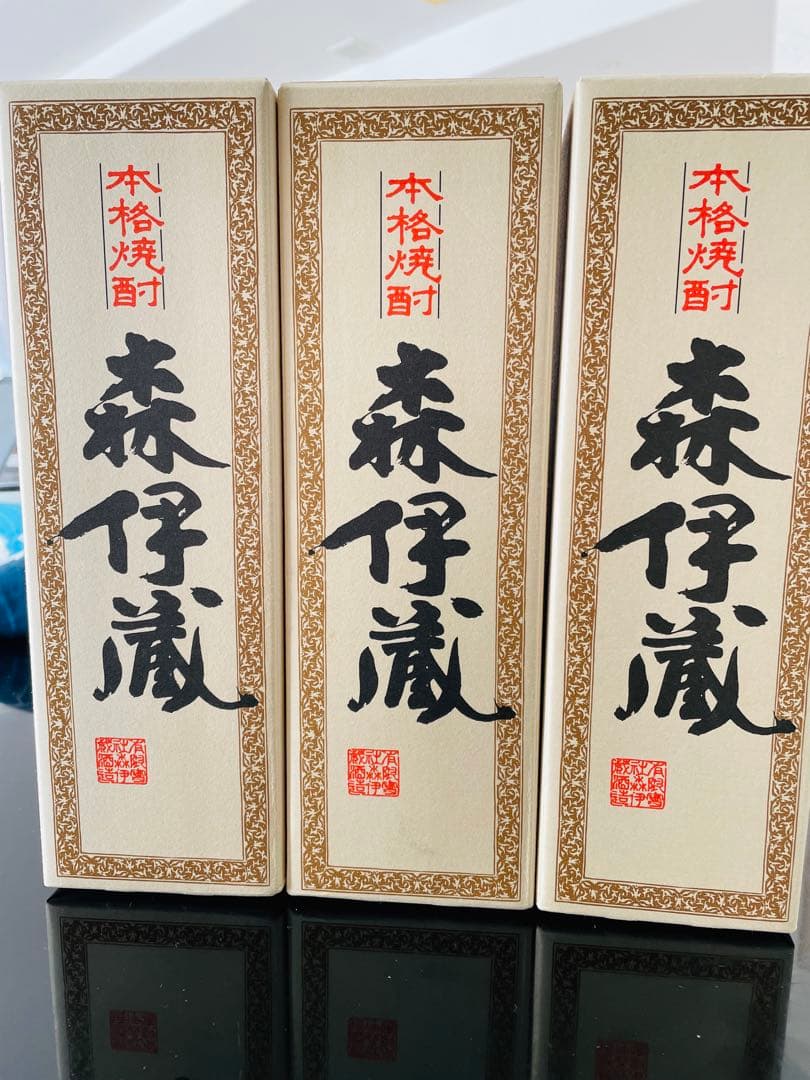 本格焼酎
森伊蔵
有限会社森伊蔵酒造
本格焼酎
森伊蔵
有限会社森伊蔵酒造
本格焼酎
森伊蔵
有限会社森伊蔵酒造